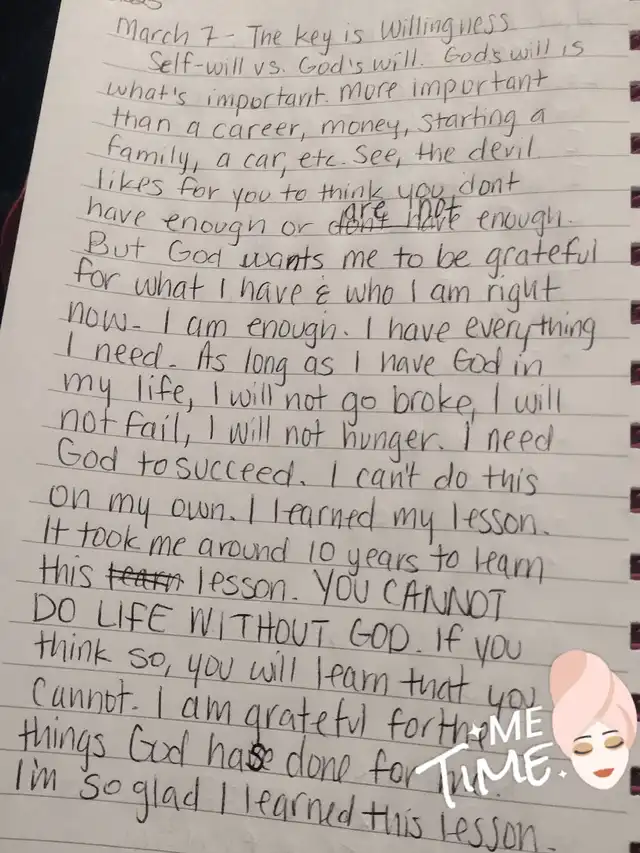 March 7 - The Key is Willingness
Self-will vs. God's will. God's will is
what's important. More important
than a career, money, starting a
family, a car, etc. See, the devil
likes for you to think you dont
have enough or don't have are not enough.
But God wants me to be grateful
for what I have & who I am right
now. I am enough. I have everything
I need. As long as I have God in
my life, I will not go broke, I will
not fail, I will not hunger. I need
God to succeed. I can't do this
on my own. I learned my lesson.
It took me around 10 years to learn
this learn lesson. YOU CANNOT
DO LIFE WITHOUT GOD. If you
think so, you will learn that you
cannot. I am grateful for the
things God has done for
I'm so glad I learned this lesson.
ME
TIME.